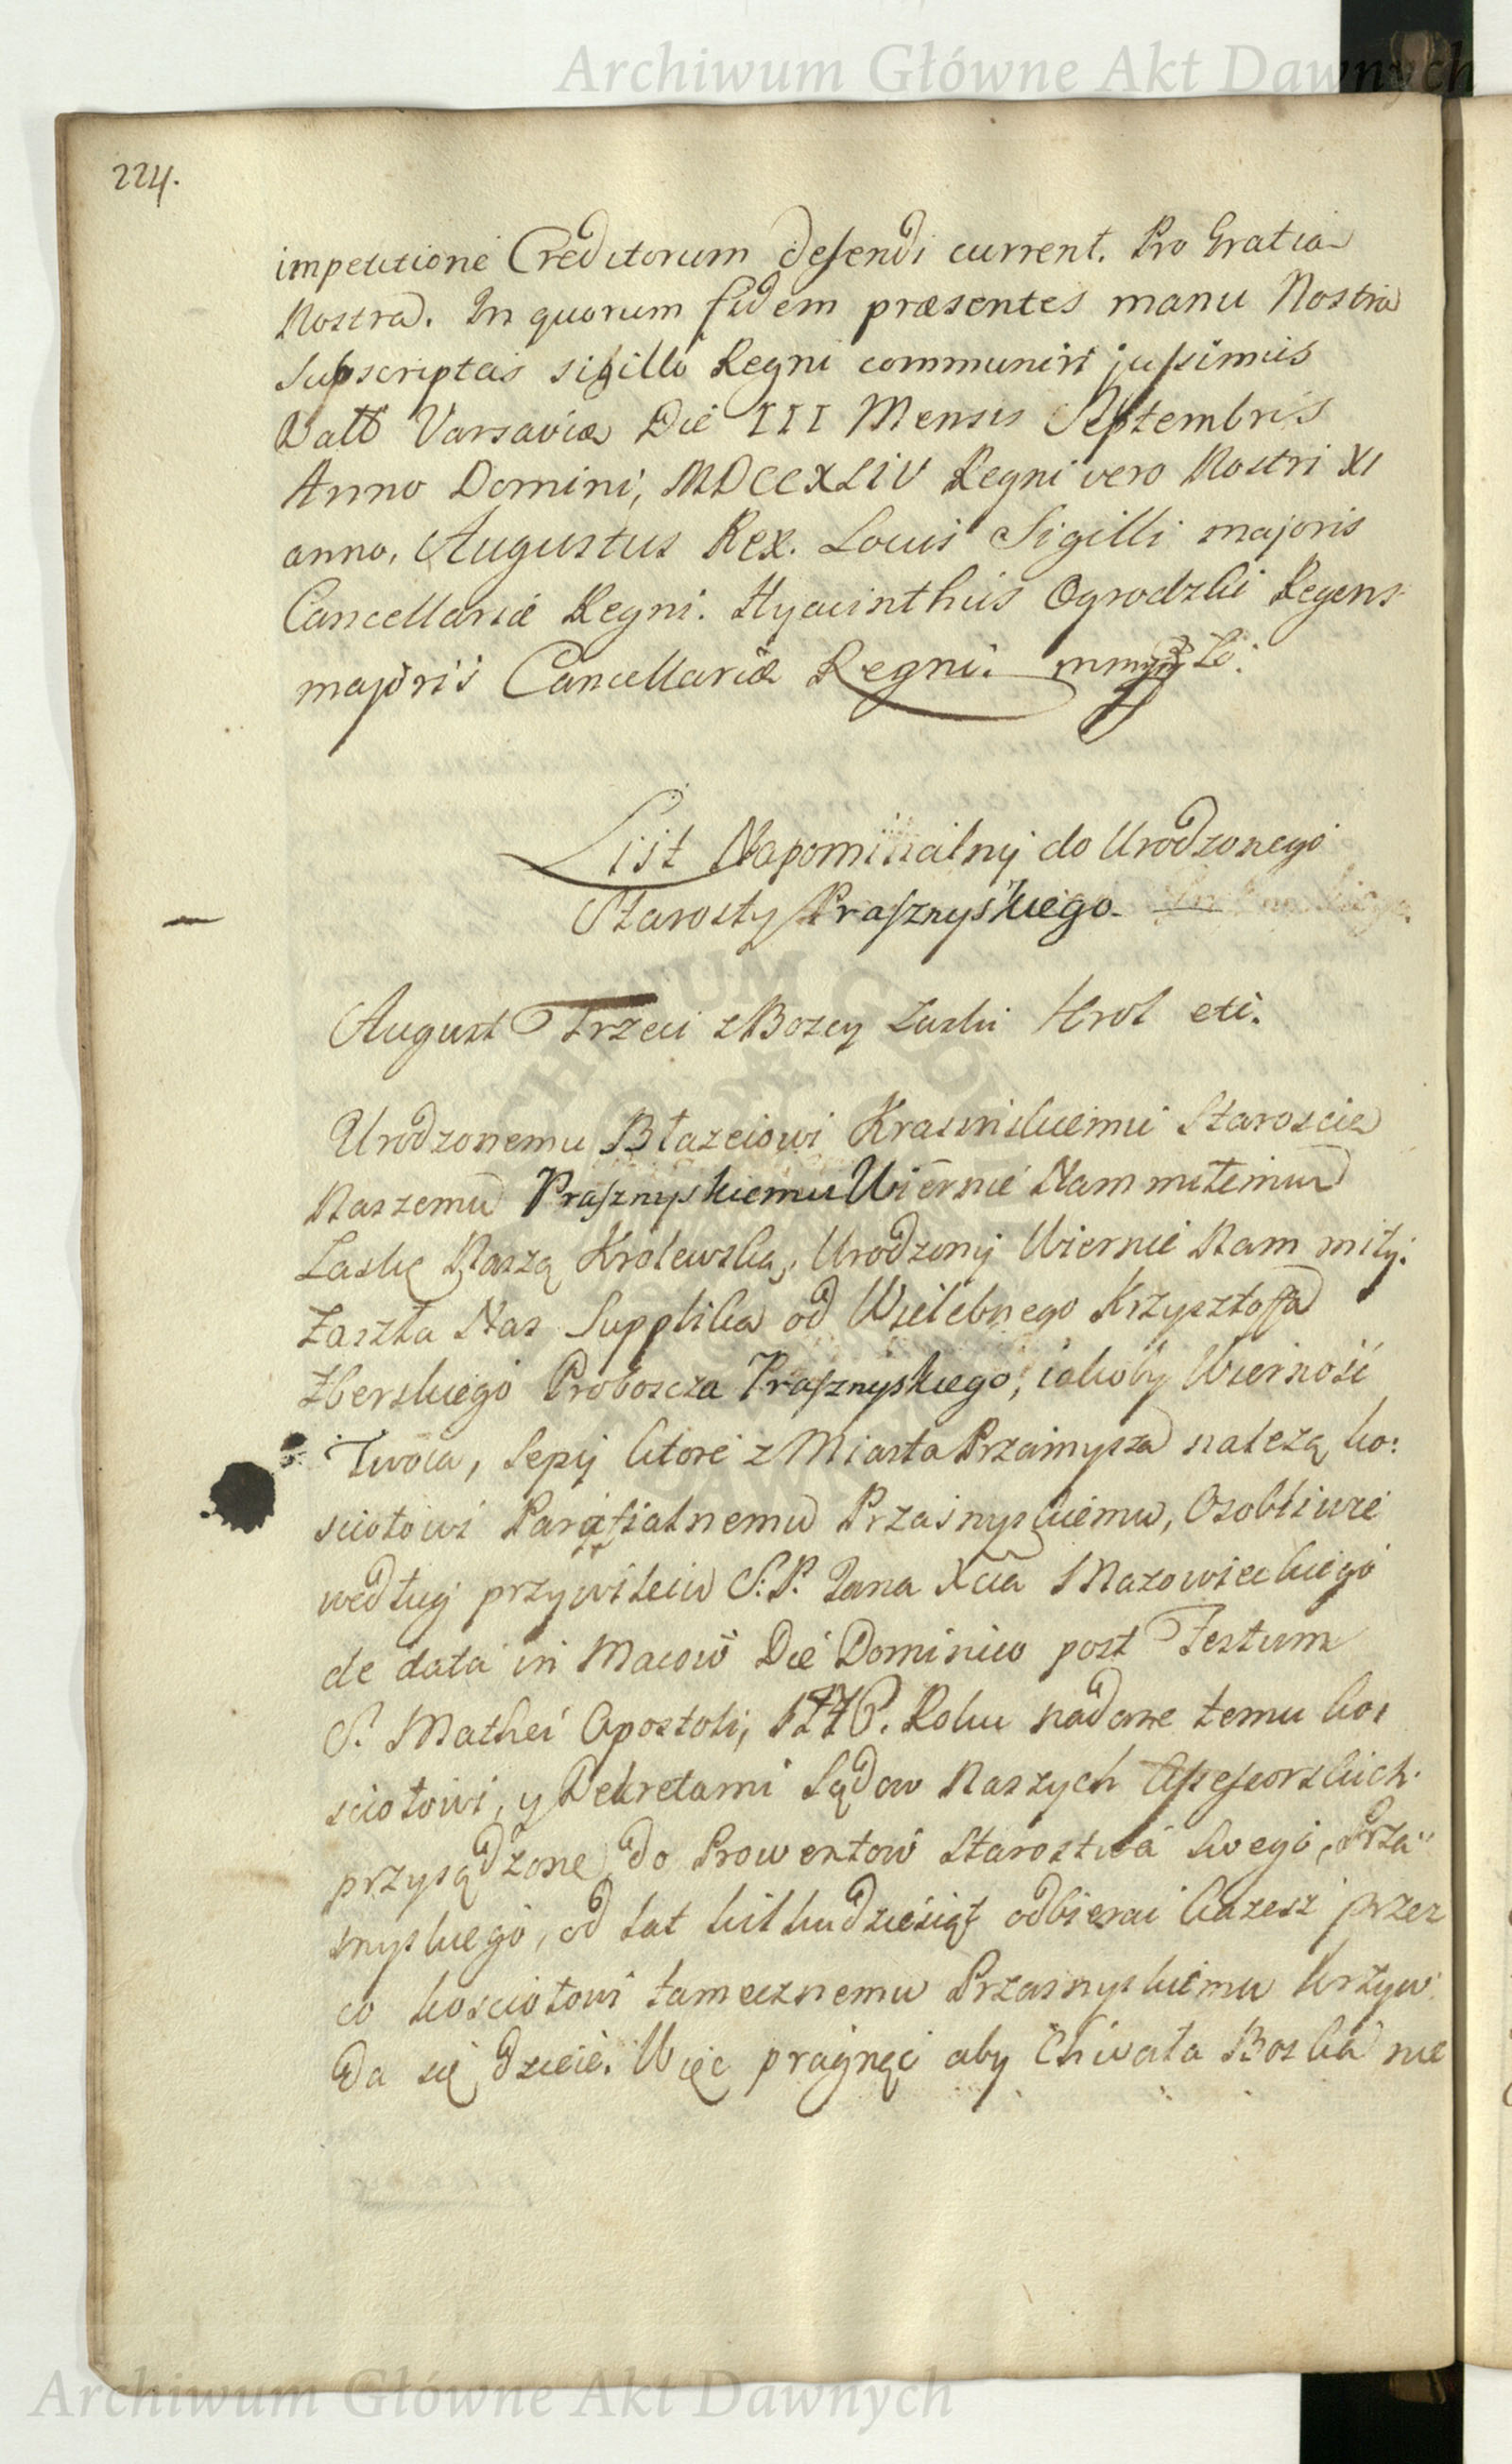 Archiwum Główne Akt Dawnych
224.
impetitione Creditorum defendi current. Pro Gratia
Nostra. In quorum fidem præsentes manu Nostra
Subscriptas sigillo Regni communiri jussimus
Datt Varsaviæ Die III Mensis Septembris
Anno Domini, MDCCXLIV Regni vero Nostri XI
anno, Augustus Rex. Locus Sigilli majoris
Cancellariæ Regni. Hyacinthus Ogrodzki Regens
majoris Cancellariæ Regni. mmpp
List Napominalny do Urodzonego
Starosty Prasznyskiego.
August Trzeci z Bozey Laski Krol etc.
Urodzonemu Błazeiowi Krasinskiemu Staroscie
Naszemu Prasznyskiemu Wiernie Nam miłemu
Laskę Naszą Krolewską, Urodzony Wiernie Nam miły.
Zaszła Nas Supplika od Wielebnego Krzysztoffa
Zberskiego Proboszcza Prasznyskiego, iakoby Wierność
Twoia, Sepy ktore z Miasta Przasnysza nalezą ko:
sciołowi Parafialnemu Przasnyskiemu, Osobliwie
według przywileiu S.P. Jana Xcia Mazowieckiego
de data in Macow Die Dominico post Festum
S. Mathei Apostoli, Roku nadane temu ko:
sciołowi, y Dekretami Sądow Naszych Assessorskich
przysądzone do Prowentow Starostwa swego, Prza"
snyskiego, od lat kilkudziesiąt odbierai kazesz przez
co kosciołowi tamecznemu Przasnyskiemu krzyw:
da się dzieie. Więc pragnąc aby Chwała Boska nie
Archiwum Główne Akt Dawnych